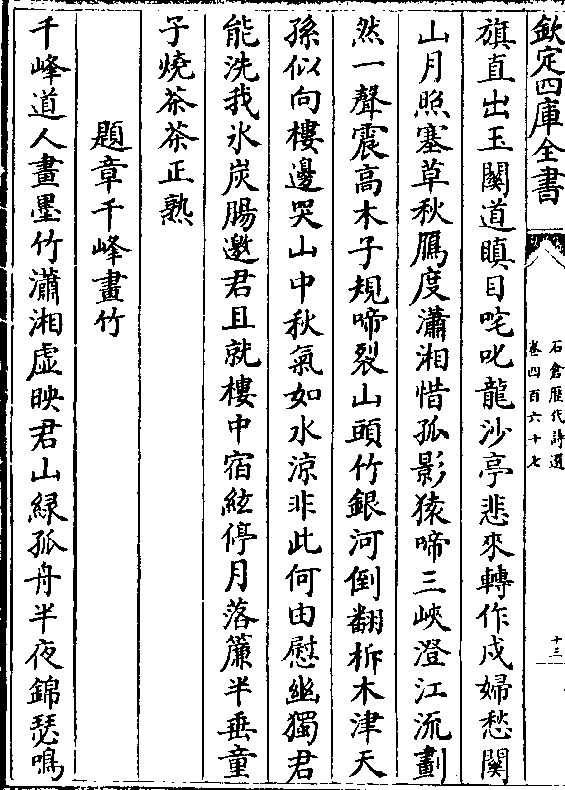 欽定四庫全書
石倉歷代詩選
卷四百六十七
十三
旗直出玉闗道瞋目咤叱龍沙亭悲來轉作戍婦愁闗
山月照塞草秋鴈度瀟湘惜孤影猿啼三峽澄江流劃
然一聲震高木子規啼裂山頭竹銀河倒翻析木津天
孫似向樓邊哭山中秋氣如水涼非此何由慰幽獨君
能洗我氷炭腸邀君且就樓中宿絃停月落簾半垂童
子燒茶茶正熟
題章千峰畫竹
千峰道人畫墨竹瀟湘虛映君山緑孤舟半夜錦瑟鳴